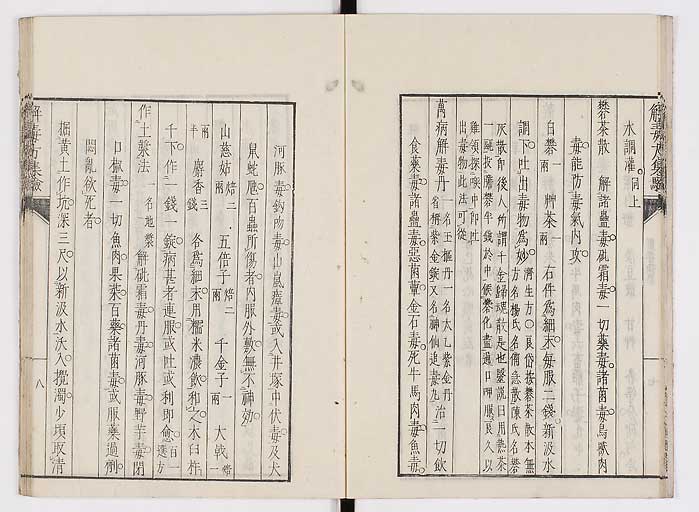 解毒方集驗
水調灌 同上
礬茶散 解諸蠱毒砒霜毒一切藥毒諸菌毒鳥獸肉
毒能防毒氣內攻
白礬一兩 牌茶一兩 右件爲細末每服二錢新汲水
調下吐出毒物爲妙
食藥毒諸蠱毒惡菌蕈金石毒死牛馬肉毒魚毒
萬病解毒丹 一名玉樞丹一名太乙紫金丹 治一切飲
河豚毒鈎吻毒山嵐瘴毒或入井塚中伏毒及犬
鼠蛇虺百蟲所傷者內服外敷無不神効
山慈姑焙二兩 五倍子焙二兩 千金子一兩 大戟一兩
半 麝香三錢 各爲細末用糯米濃飲和之木臼杵
千下作一錢一錠病甚者連服或吐或利即愈
作土漿法 一名地漿 解砒霜毒丹毒河豚毒野芋毒閉
口椒毒一切魚肉果菜百藥諸菌毒或服藥過劑
悶亂欲死者
掘黃土作坑深三尺以新汲水沃入攪濁少頃取清
解毒方集驗
八